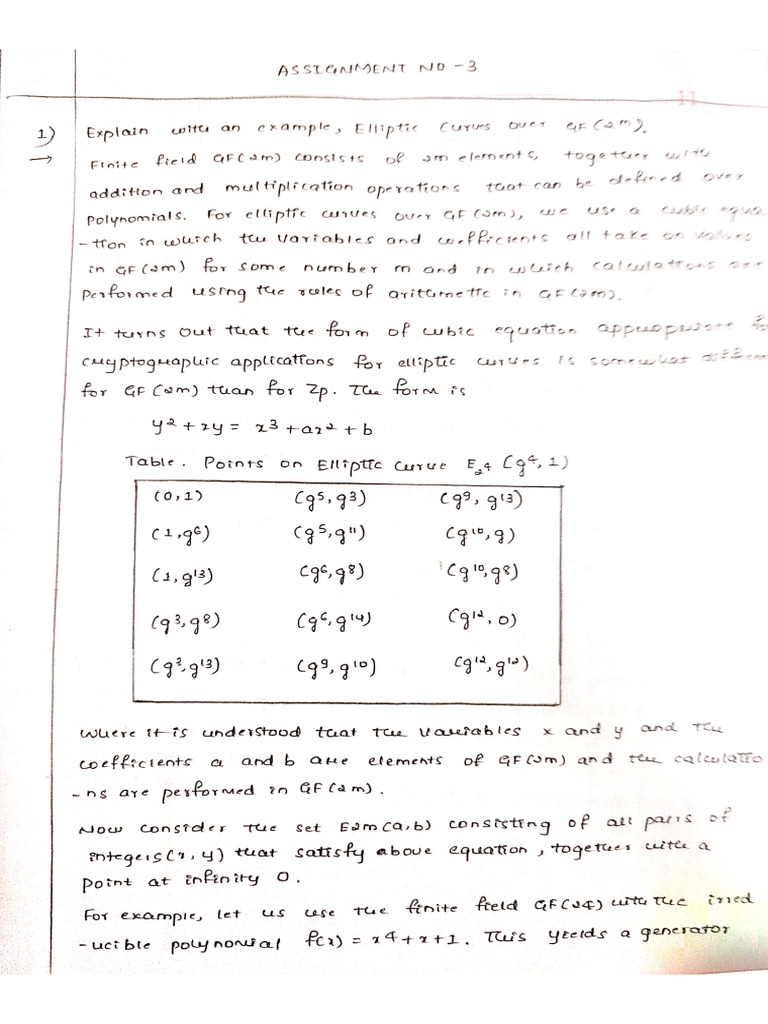 ASSIGNMENT NO -3
11
1) Explain with an example, Elliptic Curves over GF(2m).
→ Finite field GF(2m) consists of 2m elements, together with
addition and multiplication operations that can be defined over
polynomials. For elliptic curves over GF(2m), we use a cubic equa
-tion in which the variables and coefficients all take on values
in GF(2m) for some number m and in which calculations are
performed using the rules of arithmetic in GF(2m).
It turns out that the form of cubic equation appropriate fo
cryptographic applications for elliptic curves is somewhat differen
for GF(2m) than for Zp. The form is
y² + xy = x³ + ax² + b
Table. Points on Elliptic Curve E₂4 (g⁴, 1)
(0,1) (g⁵, g³) (g⁹, g¹³)
(1, g⁶) (g⁵, g¹¹) (g¹⁰, g)
(1, g¹³) (g⁶, g⁸) (g¹⁰, g⁸)
(g³, g⁸) (g⁶, g¹⁴) (g¹², 0)
(g³, g¹³) (g⁹, g¹⁰) (g¹², g¹²)
where it is understood that the variables x and y and the
coefficients a and b are elements of GF(2m) and the calculatio
-ns are performed in GF(2m).
Now consider the set E2m(a,b) consisting of all pairs of
integers(x, y) that satisfy above equation, together with a
point at infinity O.
For example, let us use the finite field GF(24) with the irred
-ucible polynomial f(x) = x4 + x + 1. This yields a generator